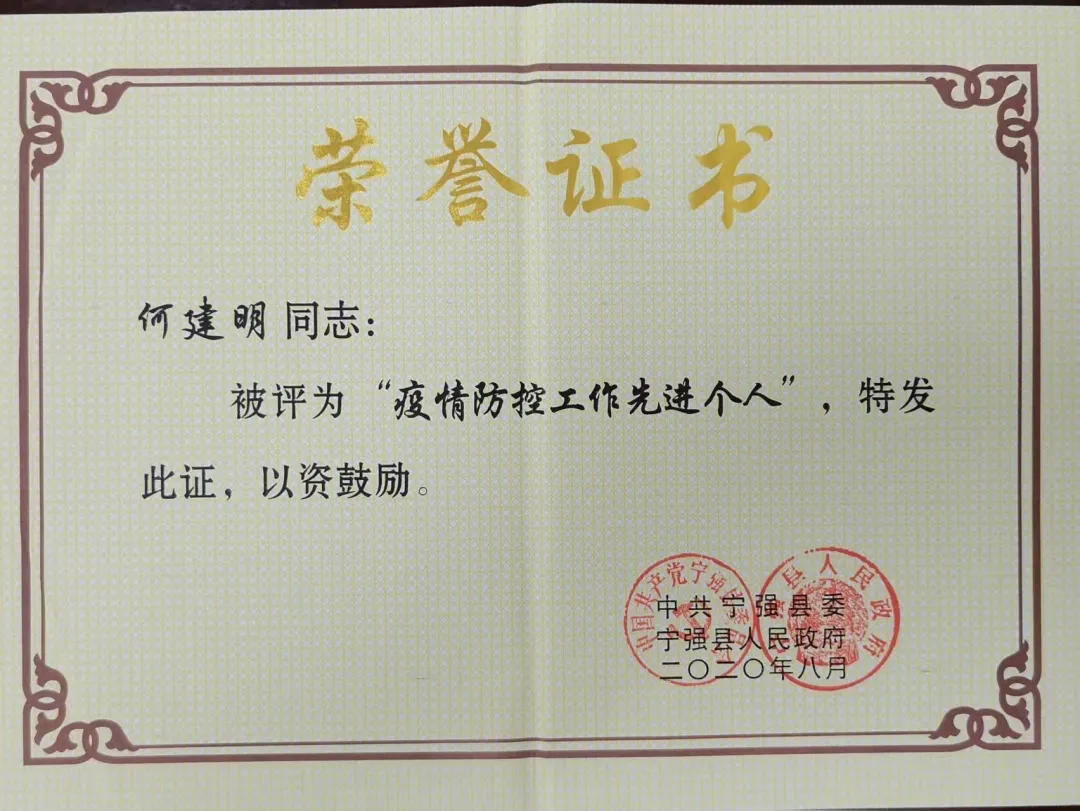 荣誉证书
何建明 同志：
被评为“疫情防控工作先进个人”，特发
此证，以资鼓励。
中共宁强县委
宁强县人民政府
二〇二〇年八月
中国共产党宁强县委员会
县人民政府